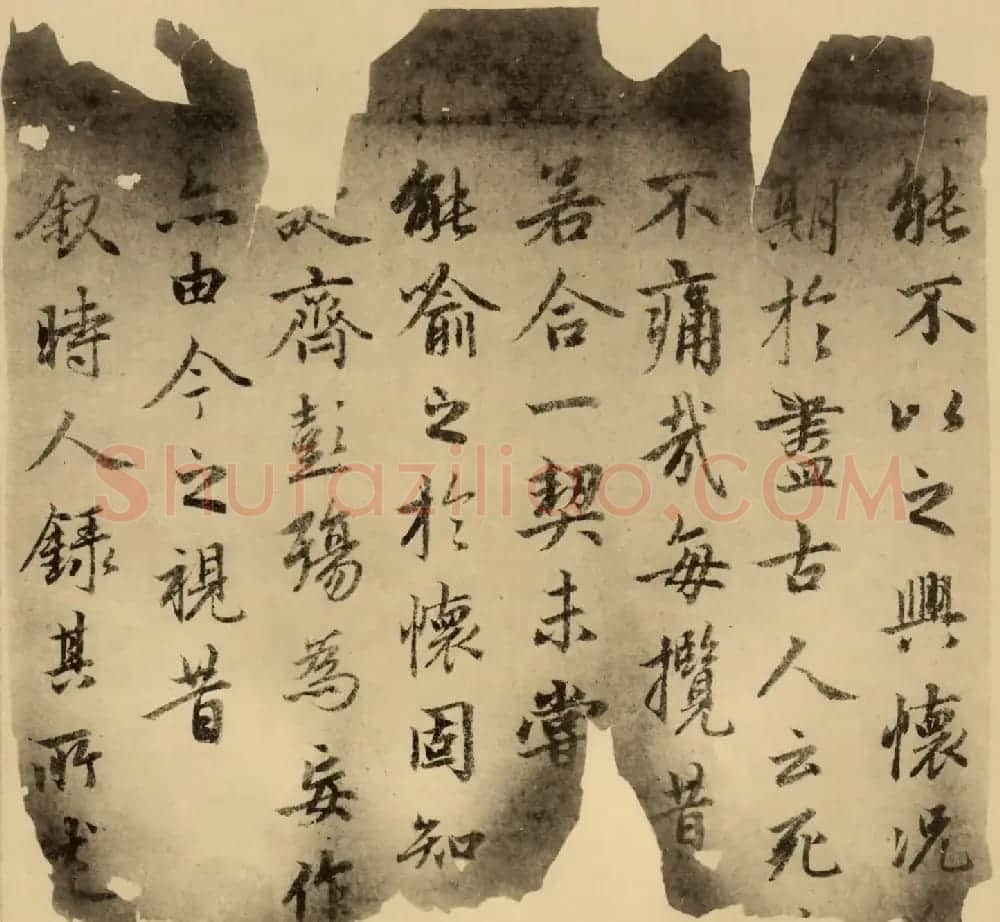 能不以之興懷況
期於盡古人云死
不痛哉每攬昔
若合一契未嘗
能喻之於懷固知
齊彭殤為妄作
亦由今之視昔
叙時人錄其所述
Shufaziliao.COM